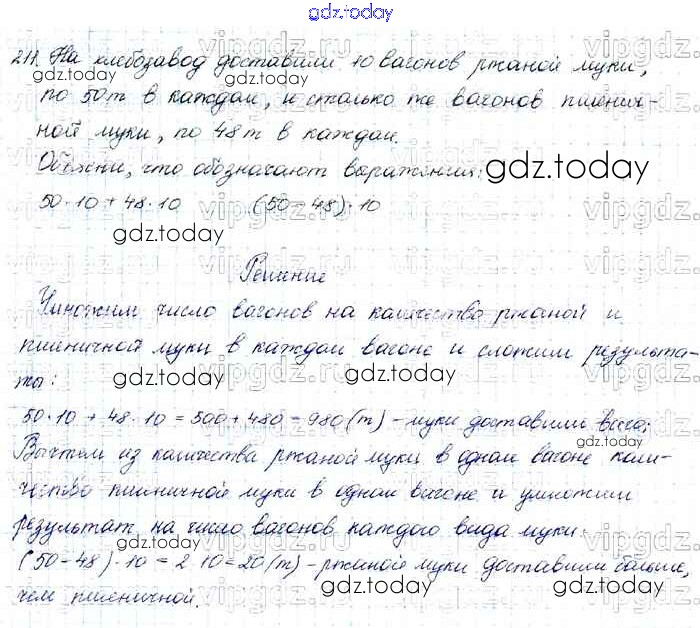 gdz.today
211. На хлебозавод доставили 10 вагонов ржаной муки,
по 50 т в каждом, и столько же вагонов пшенич-
ной муки, по 48 т в каждом.
Объясни, что обозначают выражения: gdz.today
50·10+48·10 (50-48)·10
gdz.today
Решение
Умножим число вагонов на количество ржаной и
пшеничной муки в каждом вагоне и сложим результа-
ты: gdz.today gdz.today
50·10+48·10=500+480=980(т) - муки доставили всего;
Вычтем из количества ржаной муки в одном вагоне коли-
gdz.today
чество пшеничной муки в одном вагоне и умножим
результат на число вагонов каждого вида муки.
gdz.today
(50-48)·10=2·10=20(т) - ржаной муки доставили больше,
чем пшеничной. gdz.today gdz.today